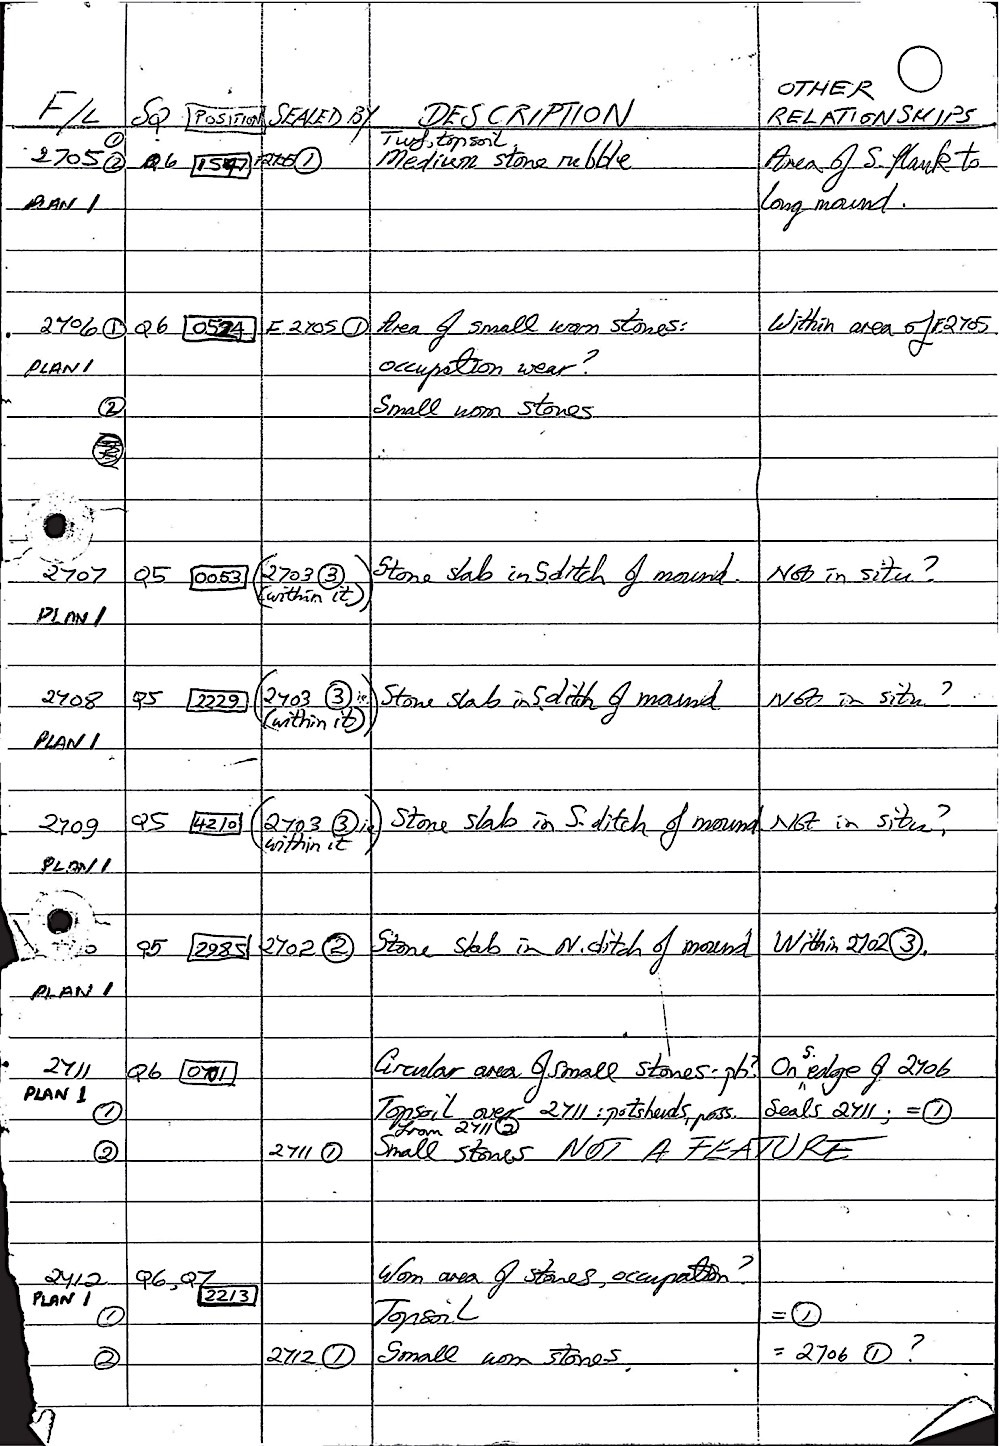 OTHER
F/L SQ POSITION SEALED BY DESCRIPTION RELATIONSHIPS
① Turf, topsoil
2705 ② Q6 1547 F2705 ① Medium stone rubble Area of S. flank to
PLAN 1 long mound.
2706 ① Q6 0524 F.2705 ① Area of small worn stones: Within area of F2705
PLAN 1 occupation wear?
② Small worn stones
2707 Q5 0053 (2703 ③ Stone slab in S ditch of mound. Not in situ?
(within it))
PLAN 1
2708 Q5 2229 (2703 ③ ie Stone slab in S. ditch of mound Not in situ?
(within it))
PLAN 1
2709 Q5 4210 (2703 ③ ie) Stone slab in S. ditch of mound Not in situ?
within it
PLAN 1
Q5 2985 2702 ② Stone slab in N. ditch of mound Within 2702 ③.
PLAN 1
2711 Q6 0701 Circular area of small stones - ph? On S. edge of 2706
PLAN 1
① Topsoil over 2711 : potsherds, poss. Seals 2711; = ①
from 2711 ②
② 2711 ① Small stones NOT A FEATURE
2712 Q6, Q7 Worn area of stones, occupation?
PLAN 1 2213
① Topsoil = ①
② 2712 ① Small worn stones. = 2706 ① ?